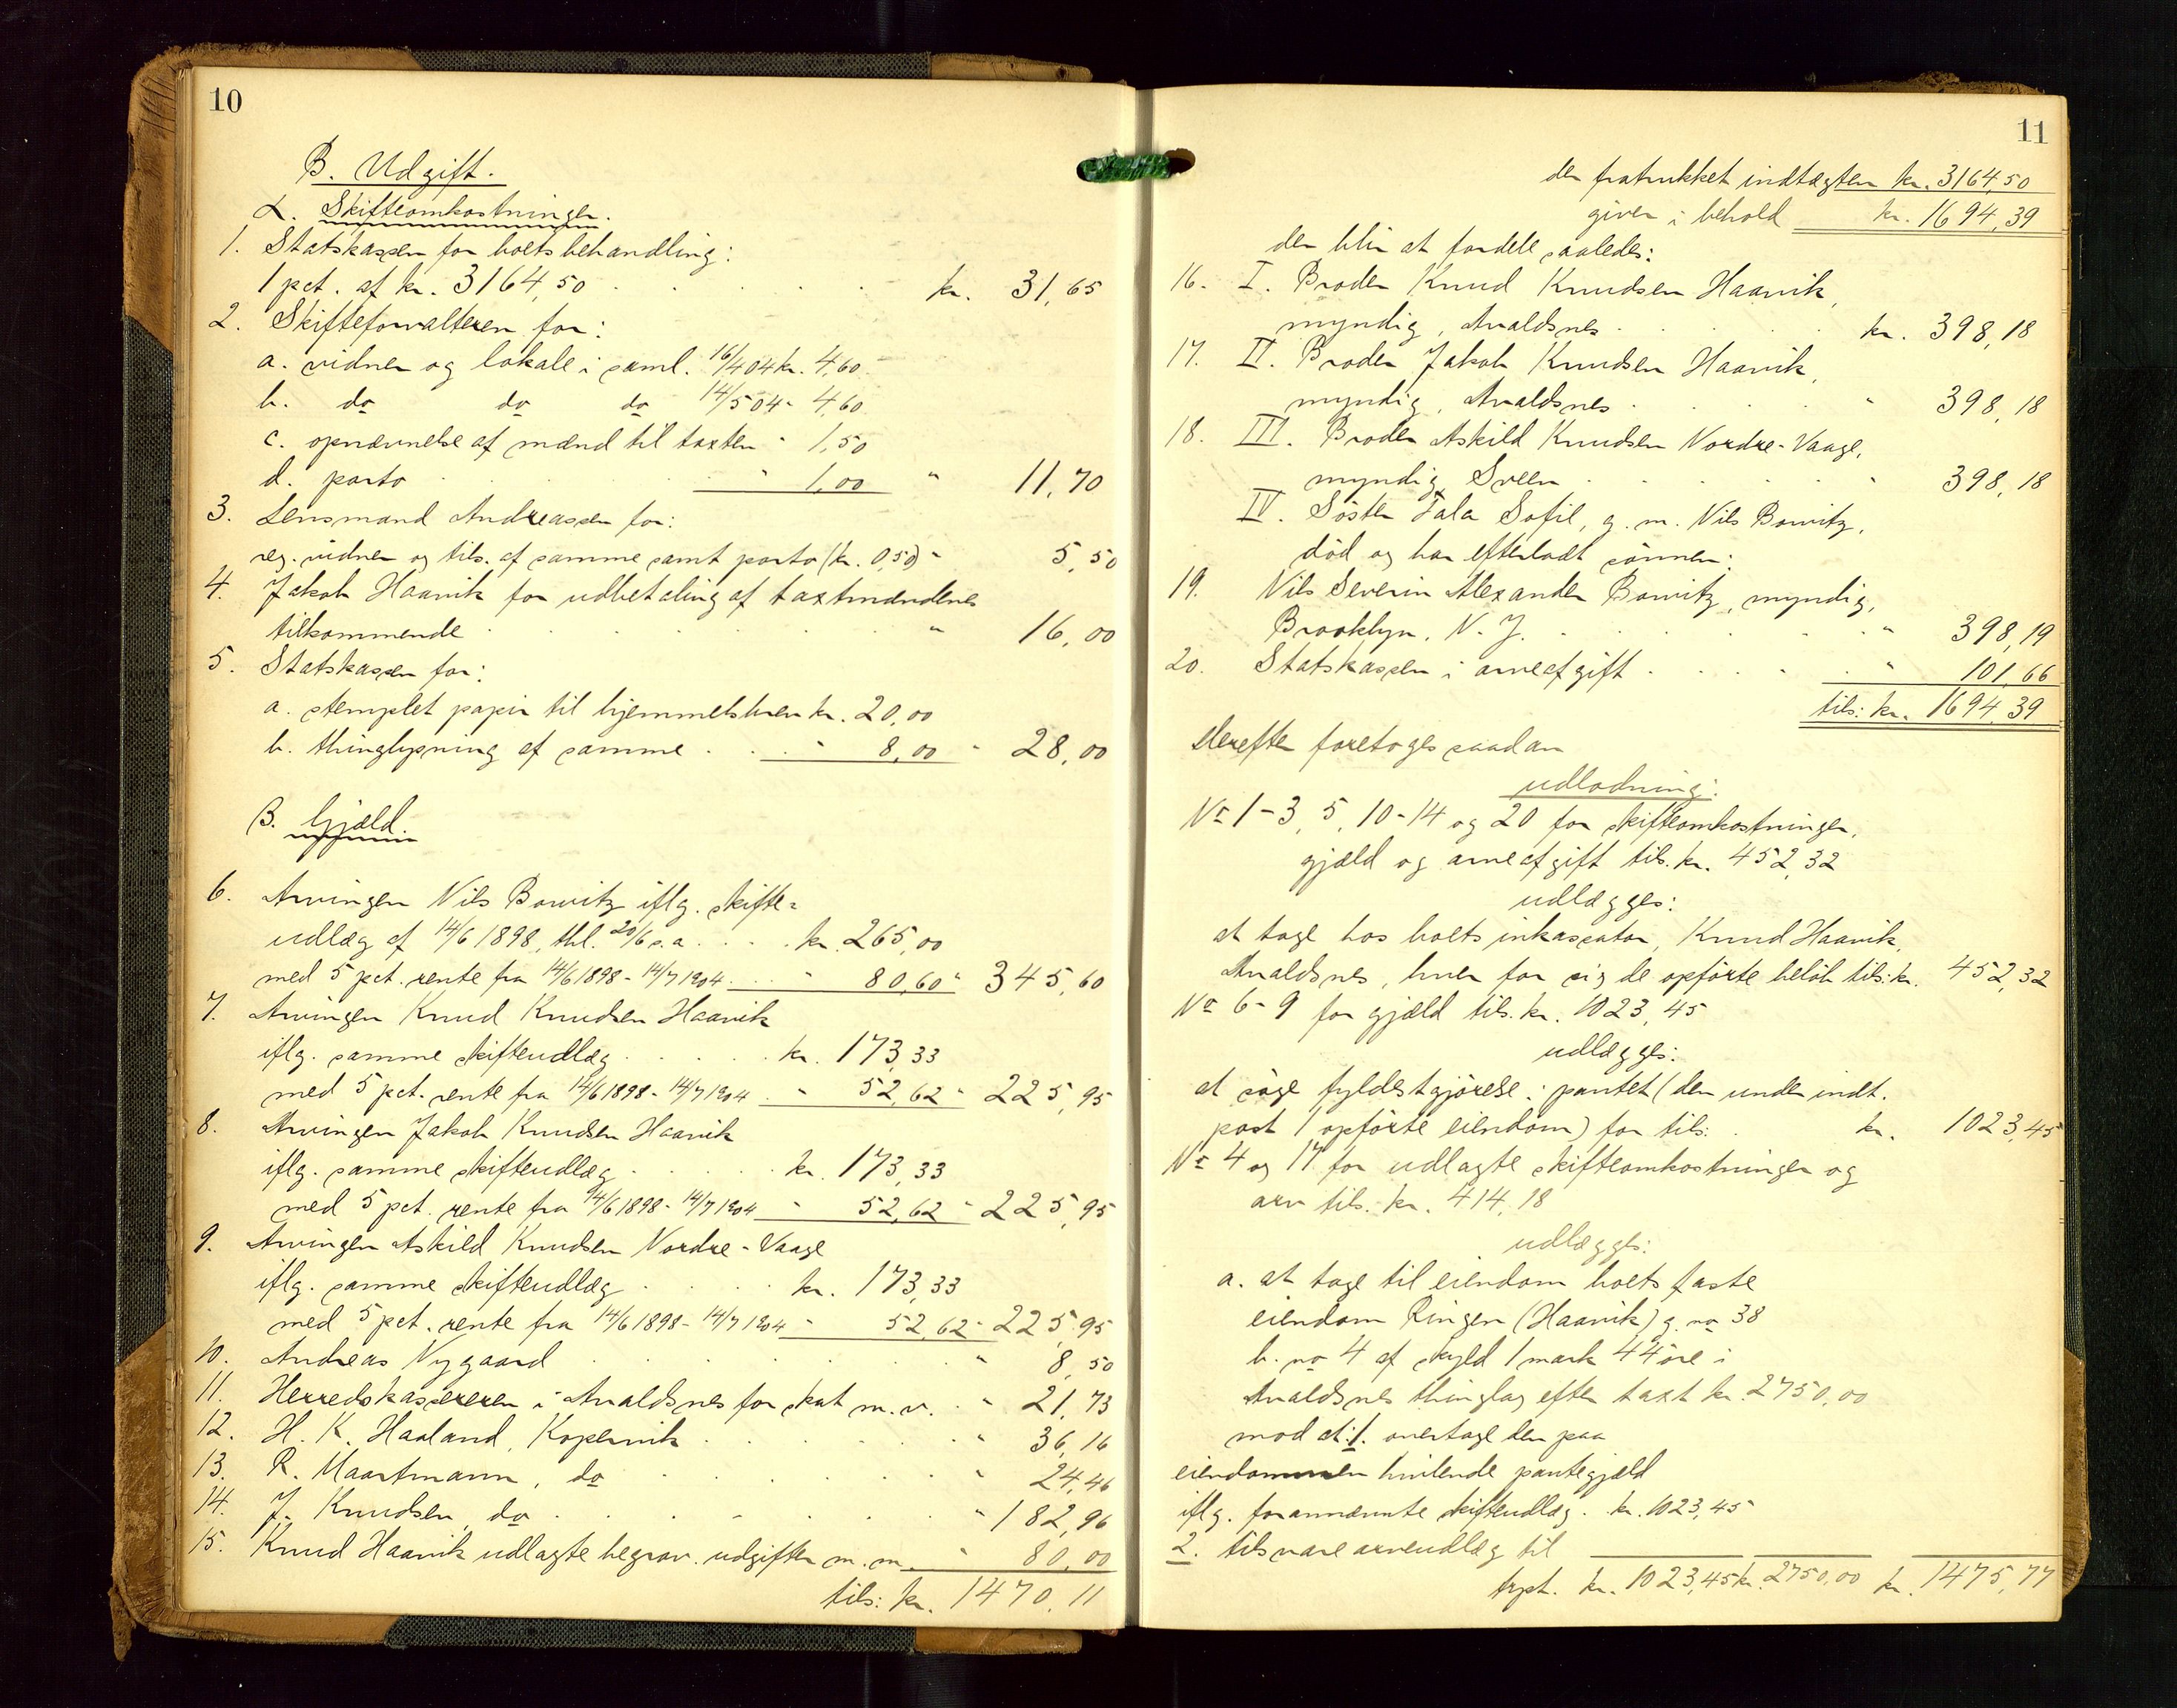 10
B. Udgift.
α. Skifteomkostninger.
1. Statskassen for boets behandling:
1 pct. af kr. 3164,50 kr. 31,65
2. Skifteforvalteren for:
a. vidner og lokale i saml. 16/4 04 kr. 4,60
b. do do do 14/5 04 - 4,60
c. opnævnelse af mænd til taxten " 1,50
d. porto " 1,00 " 11,70
3. Lensmand Andreassen for:
reg. vidner og tils. af samme samt porto (kr. 0,50) " 5,50
4. Jakob Haavik for udbetaling af taxtmændenes
tilkommende " 16,00
5. Statskassen for:
a. stemplet papir til hjemmelsbrev kr. 20,00
b. thinglysning af samme " 8,00 " 28,00
β. Gjæld.
6. Arvingen Nils Bowitz iflg. skifte-
udlæg af 14/6 1898, thl. 20/6 s.a. kr. 265,00
med 5 pct. rente fra 14/6 1898 - 14/7 1904 " 80,60 " 345,60
7. Arvingen Knud Knudsen Haavik
iflg. samme skifteudlæg kr. 173,33
med 5 pct. rente fra 14/6 1898 - 14/7 1904 " 52,62 " 225,95
8. Arvingen Jakob Knudsen Haavik
iflg. samme skifteudlæg kr. 173,33
med 5 pct. rente fra 14/6 1898 - 14/7 1904 " 52,62 " 225,95
9. Arvingen Askild Knudsen Nordre-Vaage
iflg. samme skifteudlæg kr. 173,33
med 5 pct. rente fra 14/6 1898 - 14/7 1904 " 52,62 " 225,95
10. Andreas Nygaard " 8,50
11. Herredskassereren i Avaldsnes for skat m.v. " 21,73
12. H. K. Haaland, Kopervik " 36,16
13. R. Maartmann, do " 24,46
14. J. Knudsen, do " 182,96
15. Knud Haavik udlagte begrav. udgifter m.m. " 80,00
tils: kr. 1470,11
11
der fratrukket indtægten kr. 3164,50
giver i behold kr. 1694,39
der blir at fordele saaledes:
16. I. Broder Knud Knudsen Haavik,
myndig, Avaldsnes kr. 398,18
17. II. Broder Jakob Knudsen Haavik,
myndig, Avaldsnes " 398,18
18. III. Broder Askild Knudsen Nordre-Vaage,
myndig, Sveen " 398,18
IV. Søster Tala Sofie, g. m. Nils Bowitz,
død og har efterladt sønnen:
19. Nils Severin Alexander Bowitz, myndig,
Brooklyn, N. J. " 398,19
20. Statskassen i arveafgift " 101,66
tils: kr. 1694,39
Derefter foretoges saadan
udlodning:
No 1-3, 5, 10-14 og 20 for skifteomkostninger,
gjæld og arveafgift tils. kr. 452,32
udlægges:
at tage hos boets inkassator, Knud Haavik,
Avaldsnes, hver for sig de opførte beløb tils: kr. 452,32
No 6-9 for gjæld tils. kr. 1023,45
udlægges:
at søge fyldestgjørelse i pantet (den under indt.
post 1 opførte eiendom) for tils: kr. 1023,45
No 4 og 17 for udlagte skifteomkostninger og
arv tils. kr. 414,18
udlægges:
a. at tage til eiendom boets faste
eiendom Ringen (Haavik) g. no 38
b. no 4 af skyld 1 mark 44 øre i
Avaldsnes thinglag efter taxt kr. 2750,00
mod at: 1. overtage den paa
eiendommen hvilende pantegjæld
iflg. forannævnte skifteudlæg. kr. 1023,45
2. tilsvare arveudlæg til
trpt. kr. 1023,45 kr. 2750,00 kr. 1475,77